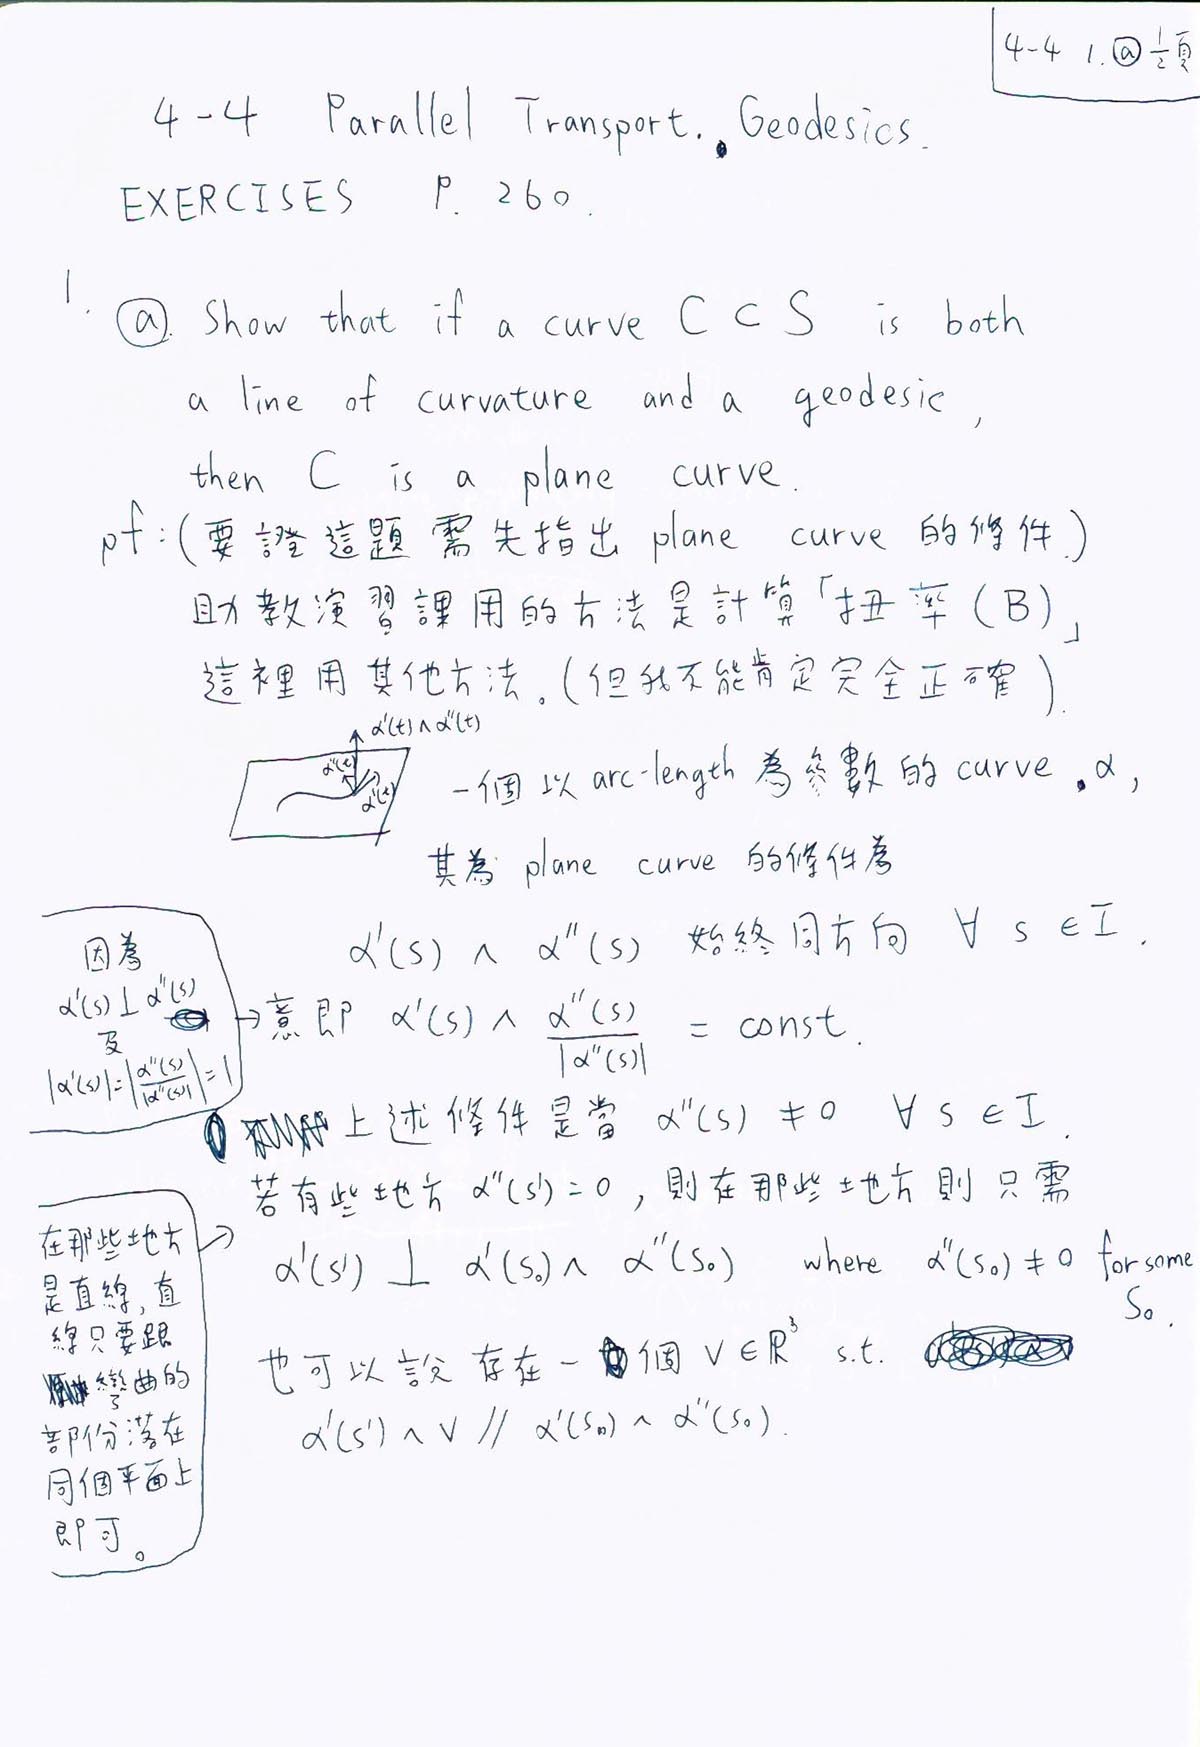 4-4 1. ⓐ 1/2頁
4-4 Parallel Transport. Geodesics.
EXERCISES P. 260.
1.
ⓐ. Show that if a curve C ⊂ S is both
a line of curvature and a geodesic,
then C is a plane curve.
pf:(要證這題需先指出 plane curve 的條件.)
助教演習課用的方法是計算「扭率(B)」
這裡用其他方法。(但我不能肯定完全正確).
α'(t) ∧ α''(t)
α''(t)
α'(t)
一個以 arc-length 為參數的 curve. α,
其為 plane curve 的條件為
α'(s) ∧ α''(s) 始終同方向 ∀ s ∈ I.
因為
α'(s) ⊥ α''(s)
及
|α'(s)| = |α''(s)/|α''(s)|| = 1
→ 意即 α'(s) ∧ α''(s)/|α''(s)| = const.
上述條件是當 α''(s) ≠ 0 ∀ s ∈ I.
若有些地方 α''(s') = 0, 則在那些地方則只需
α'(s') ⊥ α'(s₀) ∧ α''(s₀) where α''(s₀) ≠ 0 for some
s₀.
在那些地方
是直線, 直
線只要跟
彎曲的
部份落在
同個平面上
即可。
→
也可以說存在一個 v ∈ ℝ³ s.t.
α'(s') ∧ v // α'(s₀) ∧ α''(s₀).